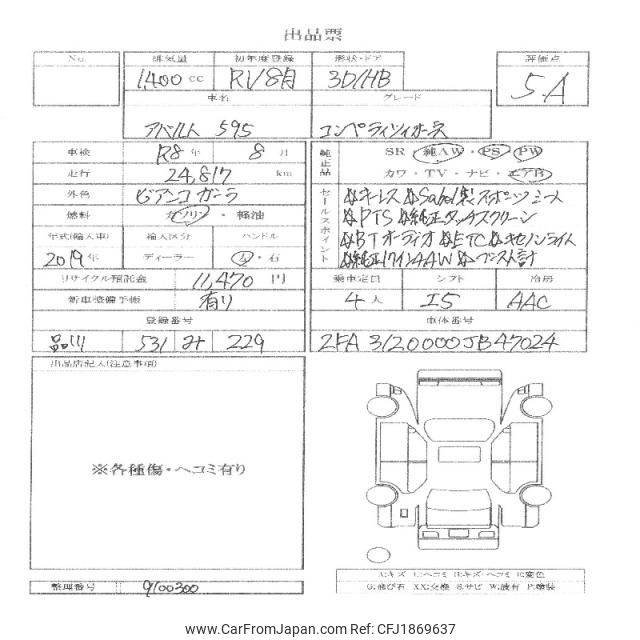 出品票
No. 排気量 初年度登録 形状・ドア 評価点
1,400 cc R1/8月 3D/HB 5.A
車名 グレード
アバルト 595 コンペティツィオーネ
車検 R8 年 8 月
走行 24,817 km
外色 ビアンコ ガーラ
燃料 ガソリン・軽油
年式(輸入車) 輸入区分 ハンドル
2019年 ディーラー 左・右
リサイクル預託金 11,470 円
新車整備手帳 有り
登録番号
品川 531 み 229
純正品 SR 純AW・PS・PW
カワ・TV・ナビ・エアB
セールスポイント
☆キーレス☆Sabelt製スポーツシート
☆PTS☆純正タッチスクリーン
☆BTオーディオ☆ETC☆キセノンライト
☆純正17インチAW☆ブースト計
乗車定員 シフト 冷房
4人 I5 AAC
車体番号
ZFA3120000JB47024
出品店記入(注意事項)
※各種傷・ヘコミ有り
A:キズ U:ヘコミ B:キズ・ヘコミ C:変色
G:飛び石 XX:交換 S:サビ W:波有 P:塗装
整理番号 9100300
www.CarFromJapan.com - CFJ1869637